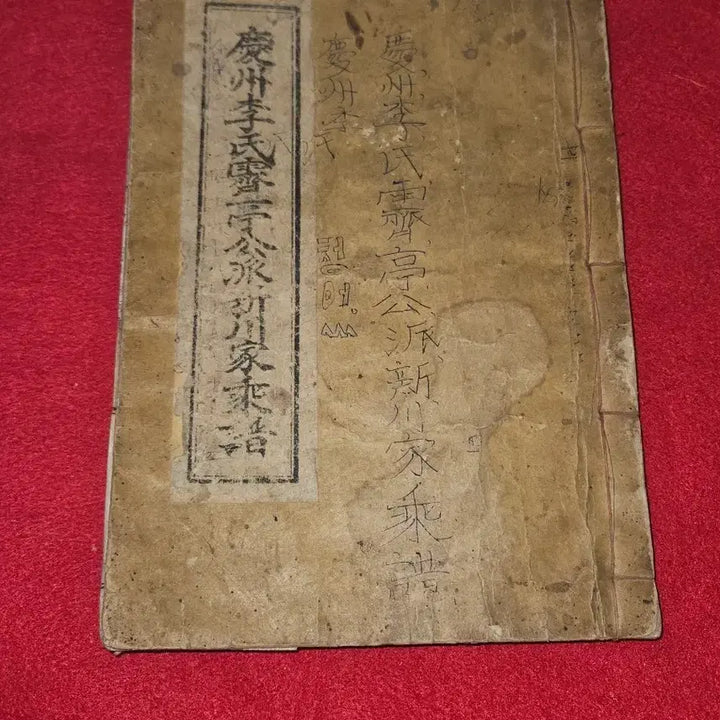 慶州李氏霽亭公派新川家乘譜
慶州李氏
慶州李氏霽亭公派新川家乘譜